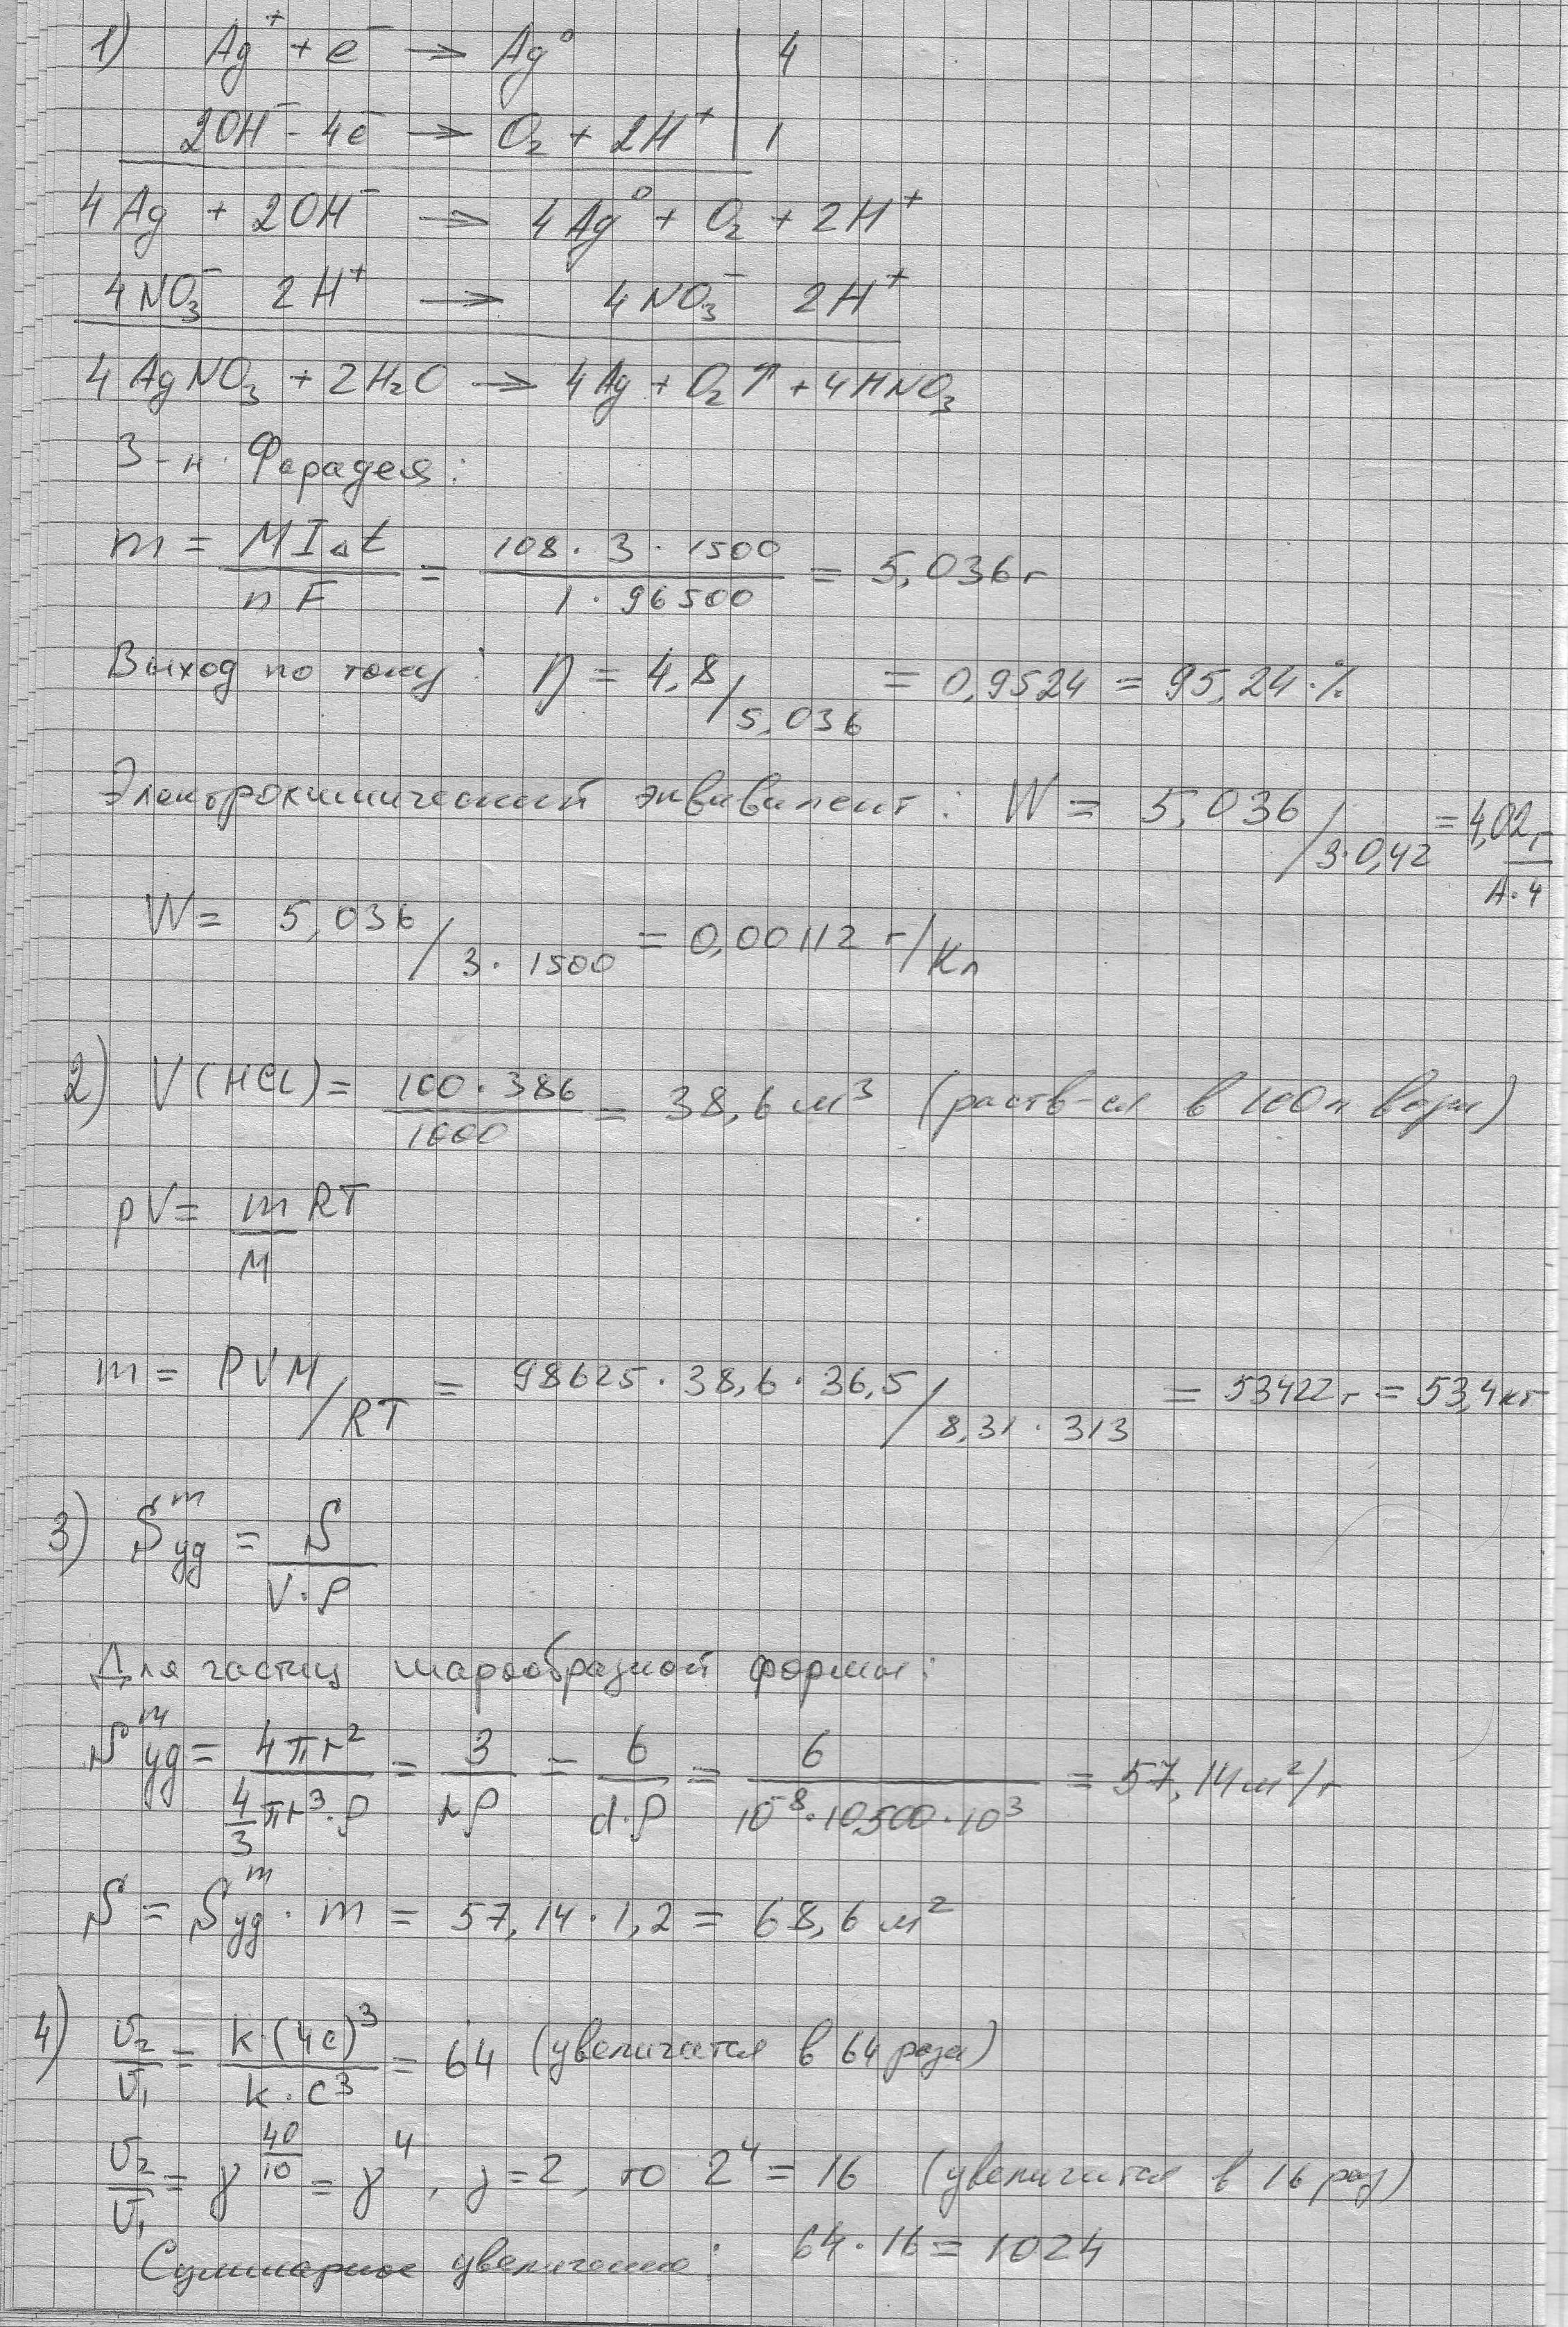 1) Ag⁺ + e⁻ → Ag⁰ | 4
2OH⁻ - 4e → O₂ + 2H⁺ | 1
4Ag + 2OH⁻ → 4Ag⁰ + O₂ + 2H⁺
4NO₃⁻ 2H⁺ → 4NO₃⁻ 2H⁺
4AgNO₃ + 2H₂O → 4Ag + O₂↑ + 4HNO₃
З-н Фарадея:
m = MIΔt / nF = 108 · 3 · 1500 / 1 · 96500 = 5,036 г
Выход по току: η = 4,8 / 5,036 = 0,9524 = 95,24 %
Электрохимический эквивалент: W = 5,036 / 3·0,42 = 4,02 г / А·ч
W = 5,036 / 3 · 1500 = 0,00112 г/Кл
2) V(HCl) = 100 · 386 / 1000 = 38,6 м³ (раств-ся в 100л воды)
pV = m/M RT
m = PVM / RT = 98625 · 38,6 · 36,5 / 8,31 · 313 = 53422 г = 53,4 кг
3) Sᵐуд = S / V·ρ
Для частиц шарообразной формы:
Sᵐуд = 4πr² / 4/3 πr³·ρ = 3 / rρ = 6 / d·ρ = 6 / 10⁻⁸·10500·10³ = 57,14 м²/г
S = Sᵐуд · m = 57,14 · 1,2 = 68,6 м²
4) υ₂/υ₁ = k·(4c)³ / k·c³ = 64 (увеличится в 64 раза)
υ₂/υ₁ = γ^(40/10) = γ⁴, γ = 2, то 2⁴ = 16 (увеличится в 16 раз)
Суммарное увеличение: 64 · 16 = 1024